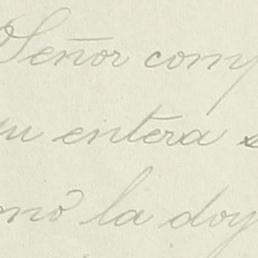 Señor comp
su entera s
omo la doy